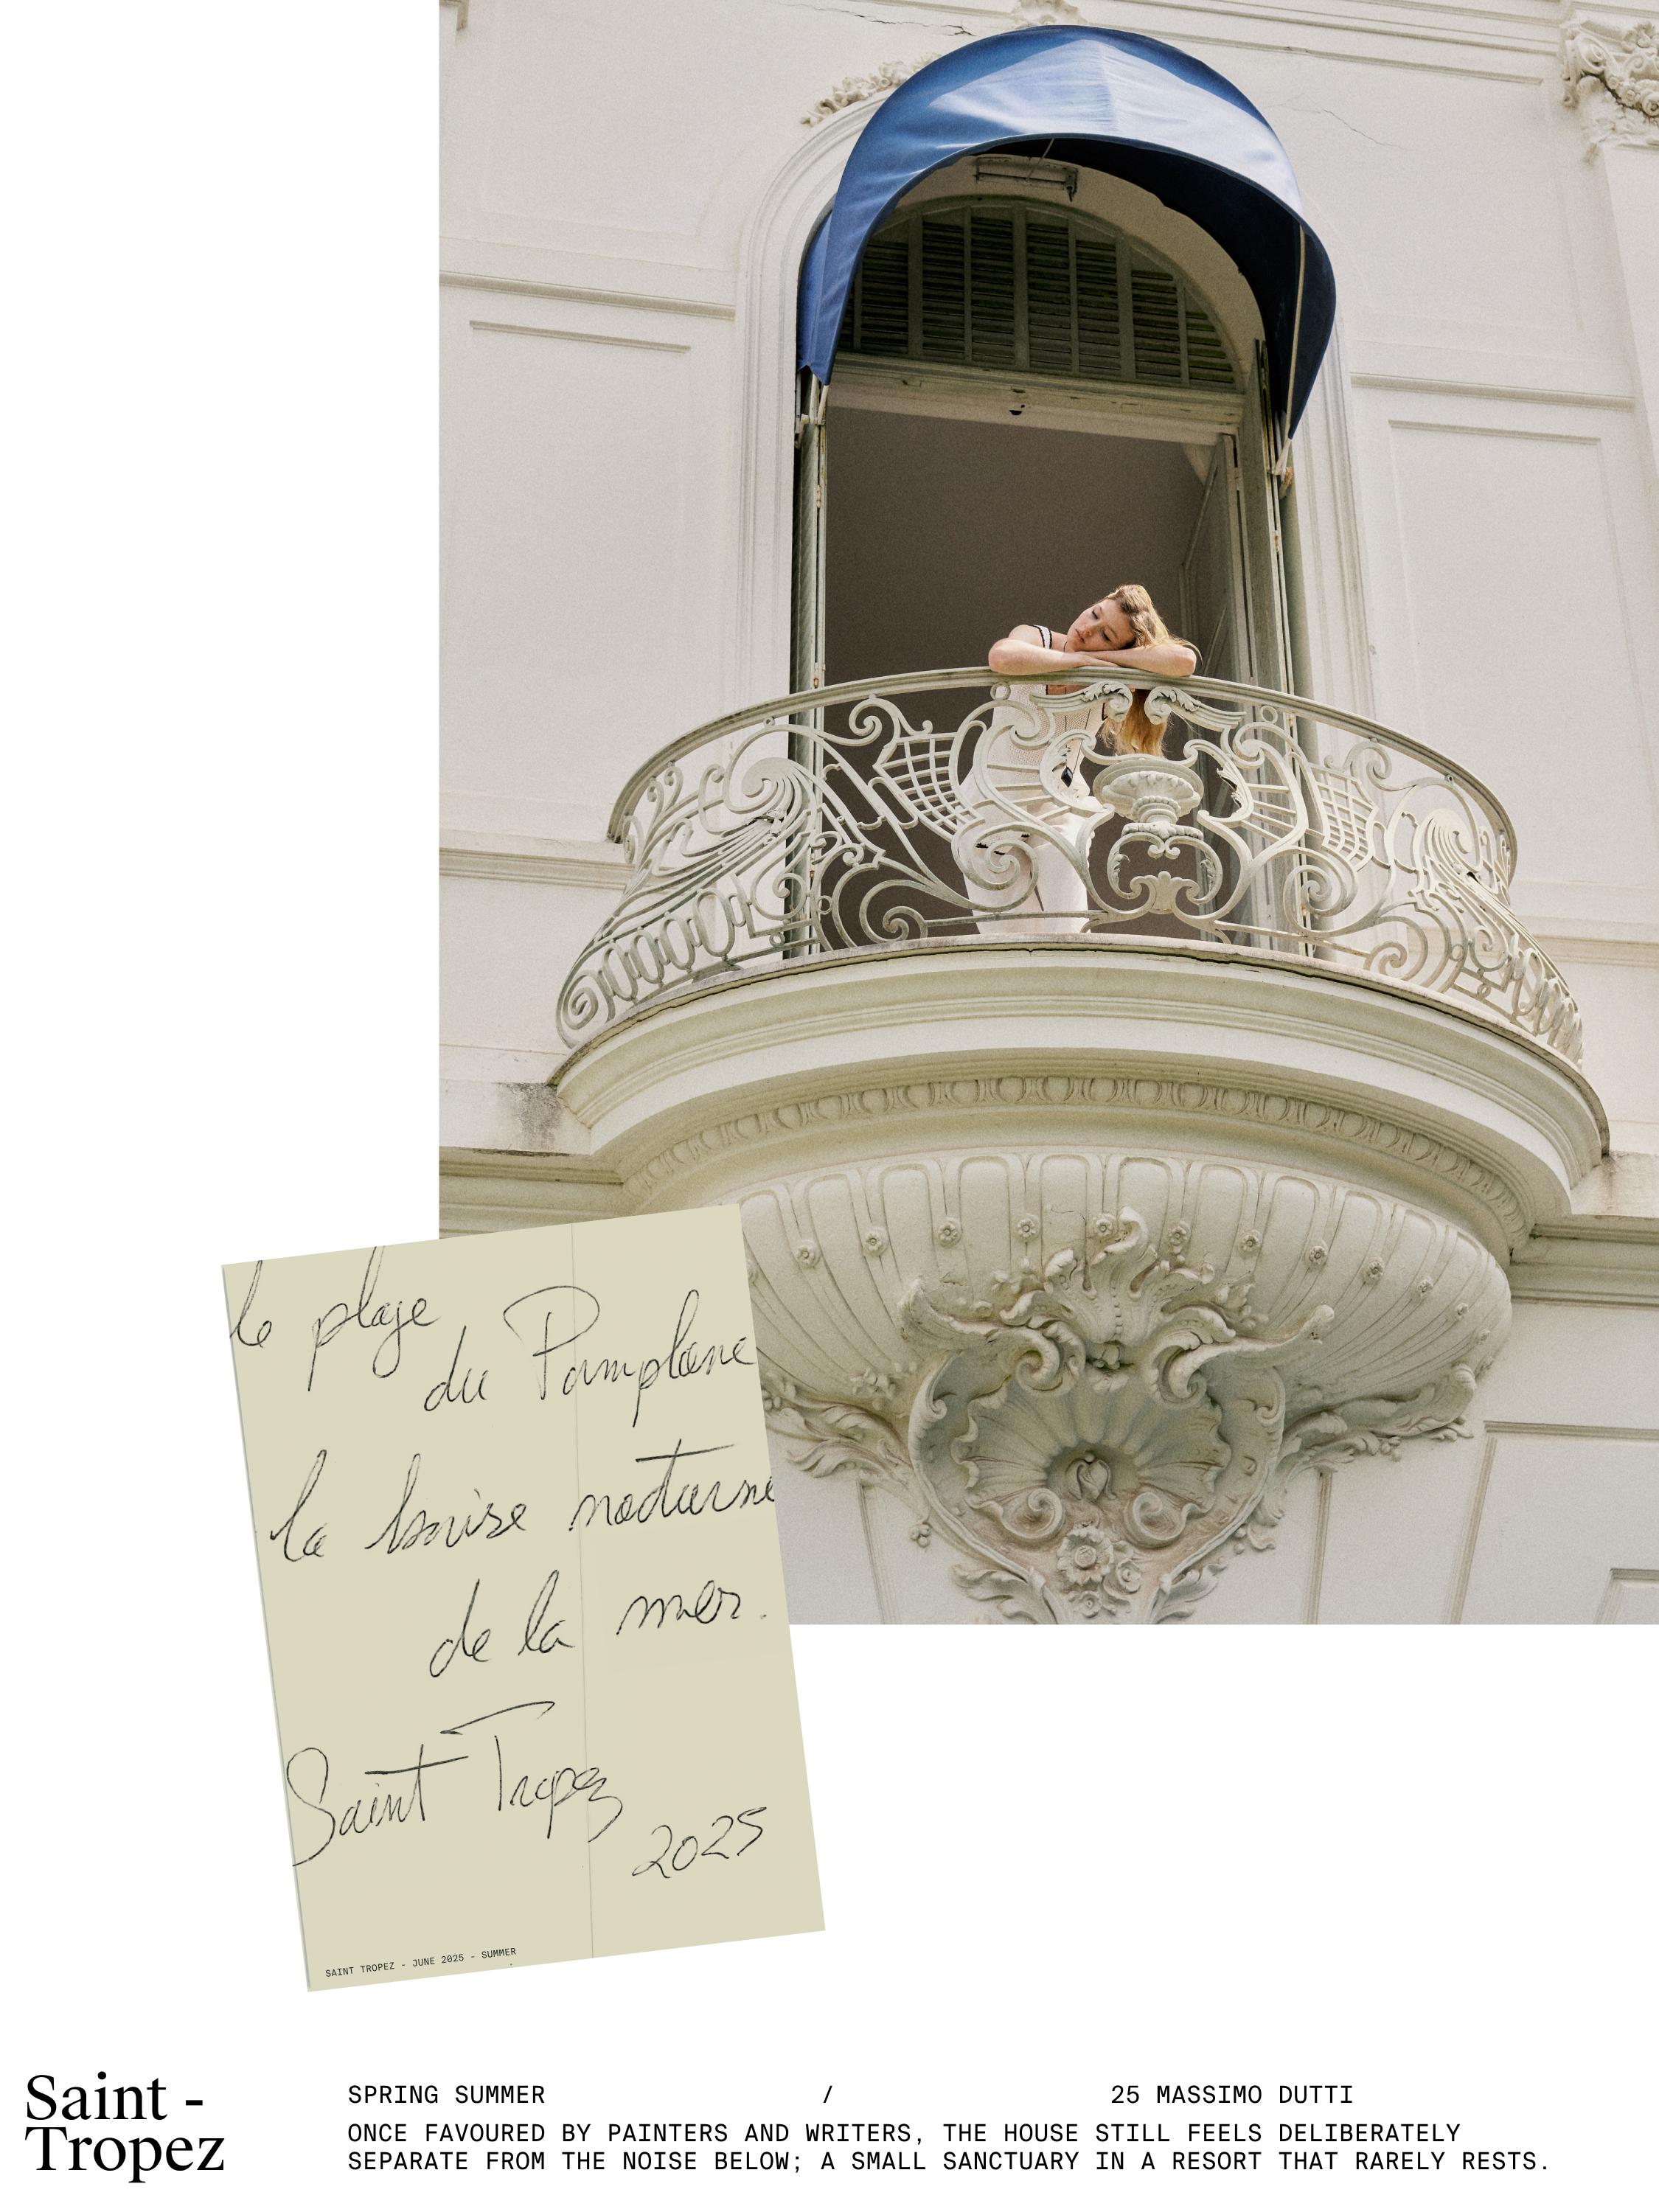 le plage
du Pamplone
la brise nocturne
de la mer.
Saint Tropez
2025
SAINT TROPEZ - JUNE 2025 - SUMMER
Saint -
Tropez
SPRING SUMMER / 25 MASSIMO DUTTI
ONCE FAVOURED BY PAINTERS AND WRITERS, THE HOUSE STILL FEELS DELIBERATELY
SEPARATE FROM THE NOISE BELOW; A SMALL SANCTUARY IN A RESORT THAT RARELY RESTS.